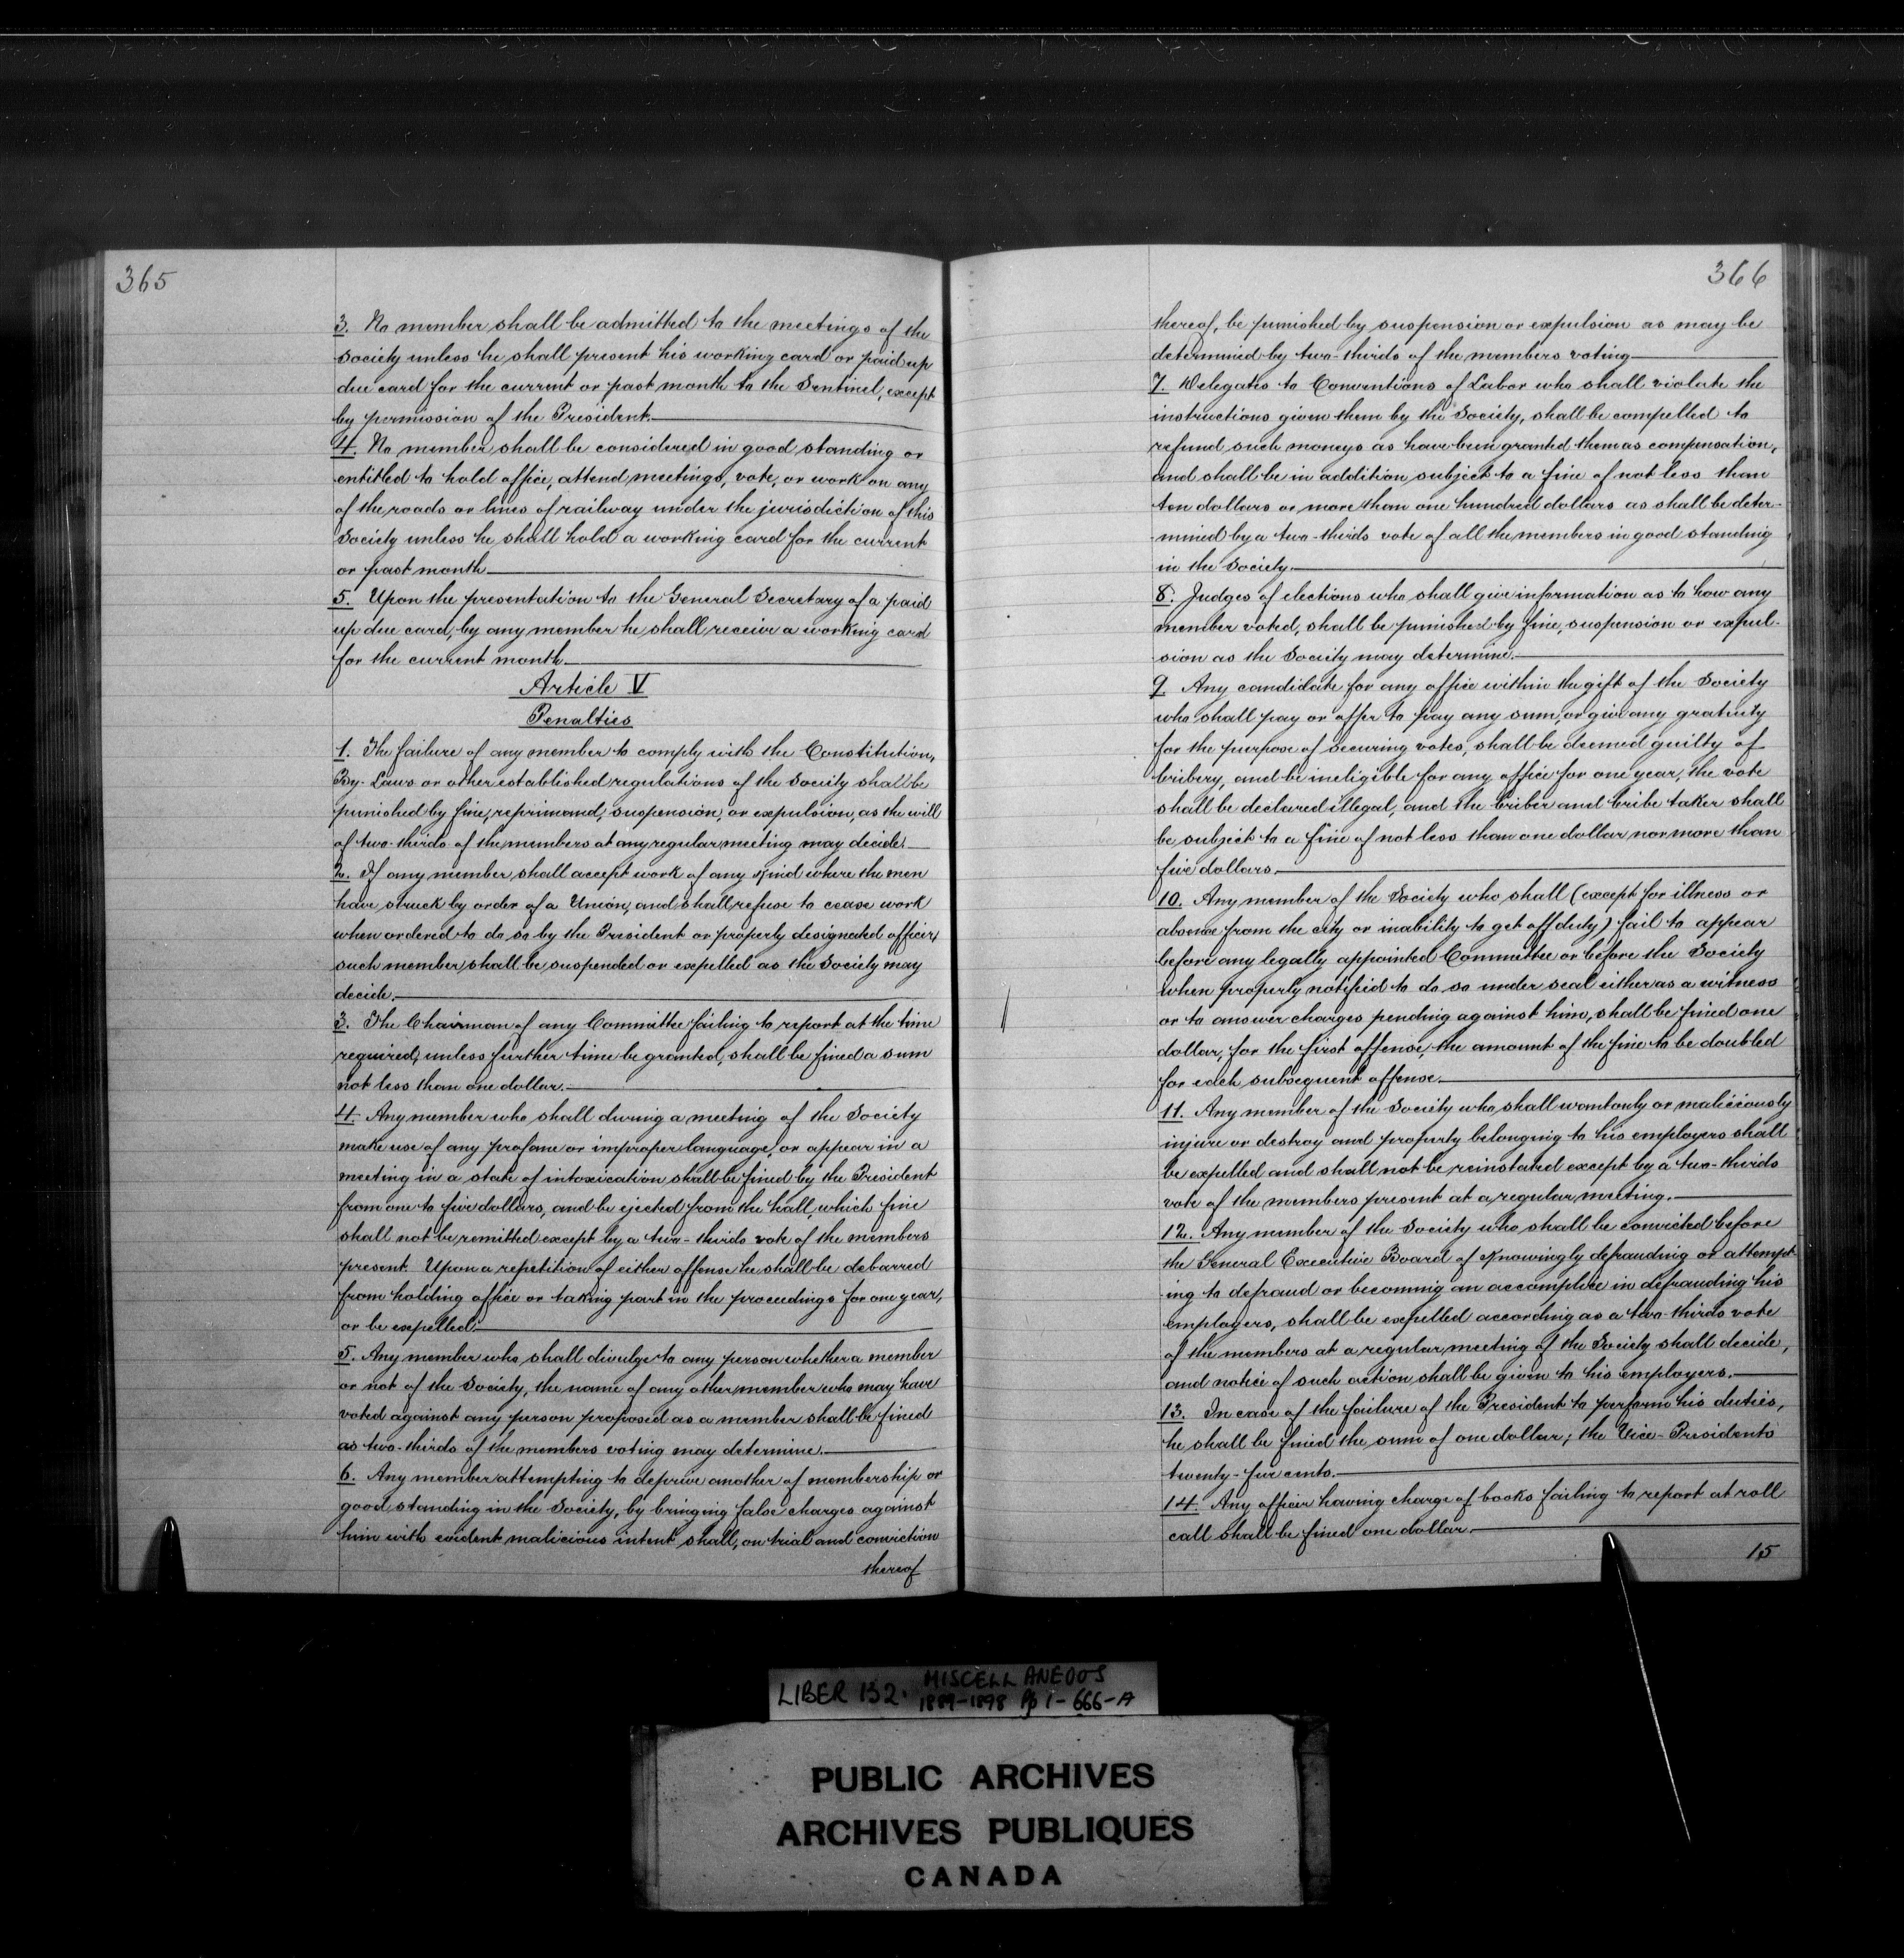 365
3. No member shall be admitted to the meetings of the
Society unless he shall present his working card or paid up
due card for the current or past month to the Sentinel, except
by permission of the President.
4. No member shall be considered in good standing or
entitled to hold office, attend meetings, vote, or work on any
of the roads or lines of railway under the jurisdiction of this
Society unless he shall hold a working card for the current
or past month
5. Upon the presentation to the General Secretary of a paid
up due card, by any member he shall receive a working card
for the current month.
Article V
Penalties
1. The failure of any member to comply with the Constitution,
By-Laws or other established regulations of the Society shall be
punished by fine, reprimand, suspension, or expulsion, as the will
of two-thirds of the members at any regular meeting may decide.
2. If any member shall accept work of any kind where the men
have struck by order of a Union, and shall refuse to cease work
when ordered to do so by the President or properly designated officer,
such member shall be suspended or expelled as the Society may
decide.
3. The Chairman of any Committee failing to report at the time
required, unless further time be granted, shall be fined a sum
not less than one dollar.
4. Any member who shall during a meeting of the Society
make use of any profane or improper language, or appear in a
meeting in a state of intoxication shall be fined by the President
from one to five dollars, and be ejected from the hall, which fine
shall not be remitted except by a two-thirds vote of the members
present. Upon a repetition of either offense he shall be debarred
from holding office or taking part in the proceedings for one year,
or be expelled.
5. Any member who shall divulge to any person whether a member
or not of the Society, the name of any other member who may have
voted against any person proposed as a member shall be fined
as two-thirds of the members voting may determine.
6. Any member attempting to deprive another of membership or
good standing in the Society, by bringing false charges against
him with evident malicious intent shall, on trial and conviction
thereof
366
thereof, be punished by suspension or expulsion as may be
determined by two-thirds of the members voting
7. Delegates to Conventions of Labor who shall violate the
instructions given them by the Society, shall be compelled to
refund such moneys as have been granted them as compensation,
and shall be in addition subject to a fine of not less than
ten dollars or more than one hundred dollars as shall be deter-
mined by a two-thirds vote of all the members in good standing
in the Society.
8. Judges of elections who shall give information as to how any
member voted, shall be punished by fine, suspension or expul-
sion as the Society may determine.
9 Any candidate for any office within the gift of the Society
who shall pay or offer to pay any sum, or give any gratuity
for the purpose of securing votes, shall be deemed guilty of
bribery, and be ineligible for any office for one year, the vote
shall be declared illegal, and the briber and bribe taker shall
be subject to a fine of not less than one dollar nor more than
five dollars.
10. Any member of the Society who shall (except for illness or
absence from the city or inability to get off duty) fail to appear
before any legally appointed Committee or before the Society
when properly notified to do so under seal either as a witness
or to answer charges pending against him, shall be fined one
dollar, for the first offense, the amount of the fine to be doubled
for each subsequent offense.
11. Any member of the Society who shall wantonly or maliciously
injure or destroy and property belonging to his employers shall
be expelled and shall not be reinstated except by a two-thirds
vote of the members present at a regular meeting.
12. Any member of the Society who shall be convicted before
the General Executive Board of knowingly defrauding or attempt-
ing to defraud or becoming an accomplice in defrauding his
employers, shall be expelled according as a two-thirds vote
of the members at a regular meeting of the Society shall decide,
and notice of such action shall be given to his employers.
13. In case of the failure of the President to perform his duties,
he shall be fined the sum of one dollar; the Vice-Presidents
twenty-five cents.
14. Any officer having charge of books failing to report at roll
call shall be fined one dollar.
15
LIBER 132. MISCELLANEOUS
1889-1898 Pp 1-666-A
PUBLIC ARCHIVES
ARCHIVES PUBLIQUES
CANADA